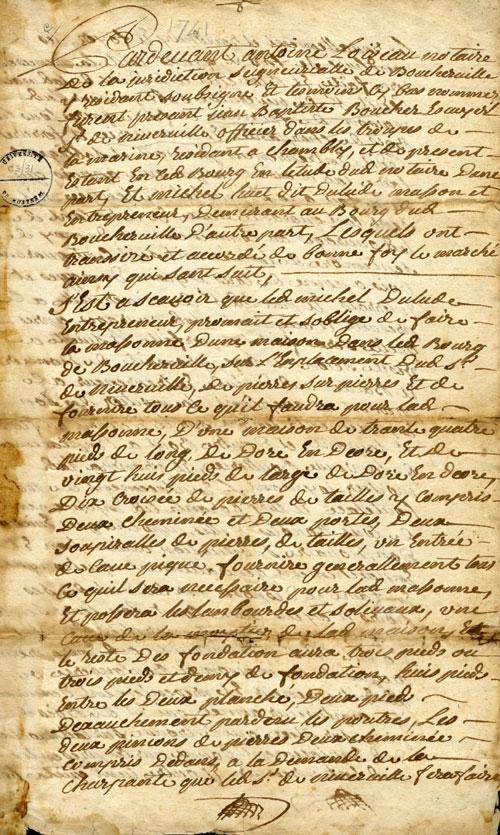 1741
Pardevant antoine Loiseau notaire
de la juridiction seigneurialle de Boucherville
y residant soubsigné, Et temoins cy bas nommez
furent presant jean Baptiste Boucher Escuyer
Sr. de niverville officier dans les troupes de
la marine, residant a chambly et de present
Estant En led Bourg En Letude dud notaire Dune
part, Et michel huet dit dulude masson et
Entrepreneur, Demeurant au Bourg dud
Boucherville D'autre part, Lesquels ont
transiré et accordé de bonne foy le marche
ainsy qui sant suit,
S'Est a scavoir que led michel Dulude
Entrepreneur, promait et soblige de faire
la massonne, Dune maison dans led Bourg
de Boucherville, sur L'Emplacement Dud Sr.
de Niverville, de pierres sur pierres Et de
fournire tous ce quil faudra pour lad
massonne, D'une maison de trante quatre
pieds de long, de Dore En deore, Et de
vingt huis pieds de large de Dore En deore,
Dix Croisée de pierres de tailles y compris
Deux cheminée et Deux portes, Deux
soupiralles de pierres, de tailles, un Entrée
de Cave pique, fournire generallement tous
Ce quil sera necessaire pour lad massonne,
Et possera les lambourdes et soliveaux, une
Cave de la de lad maison, Et
le reste Des fondation aura trois pieds ou
trois pieds et demy de fondation, huis pieds
Entre les Deux planche, Deux pieds
Dexauchement pardessu les poutres, Les
deux pinions de pierres Deux cheminée
compris Dedans, a la demande de la
charpante que led Sr. de niverville fera faire